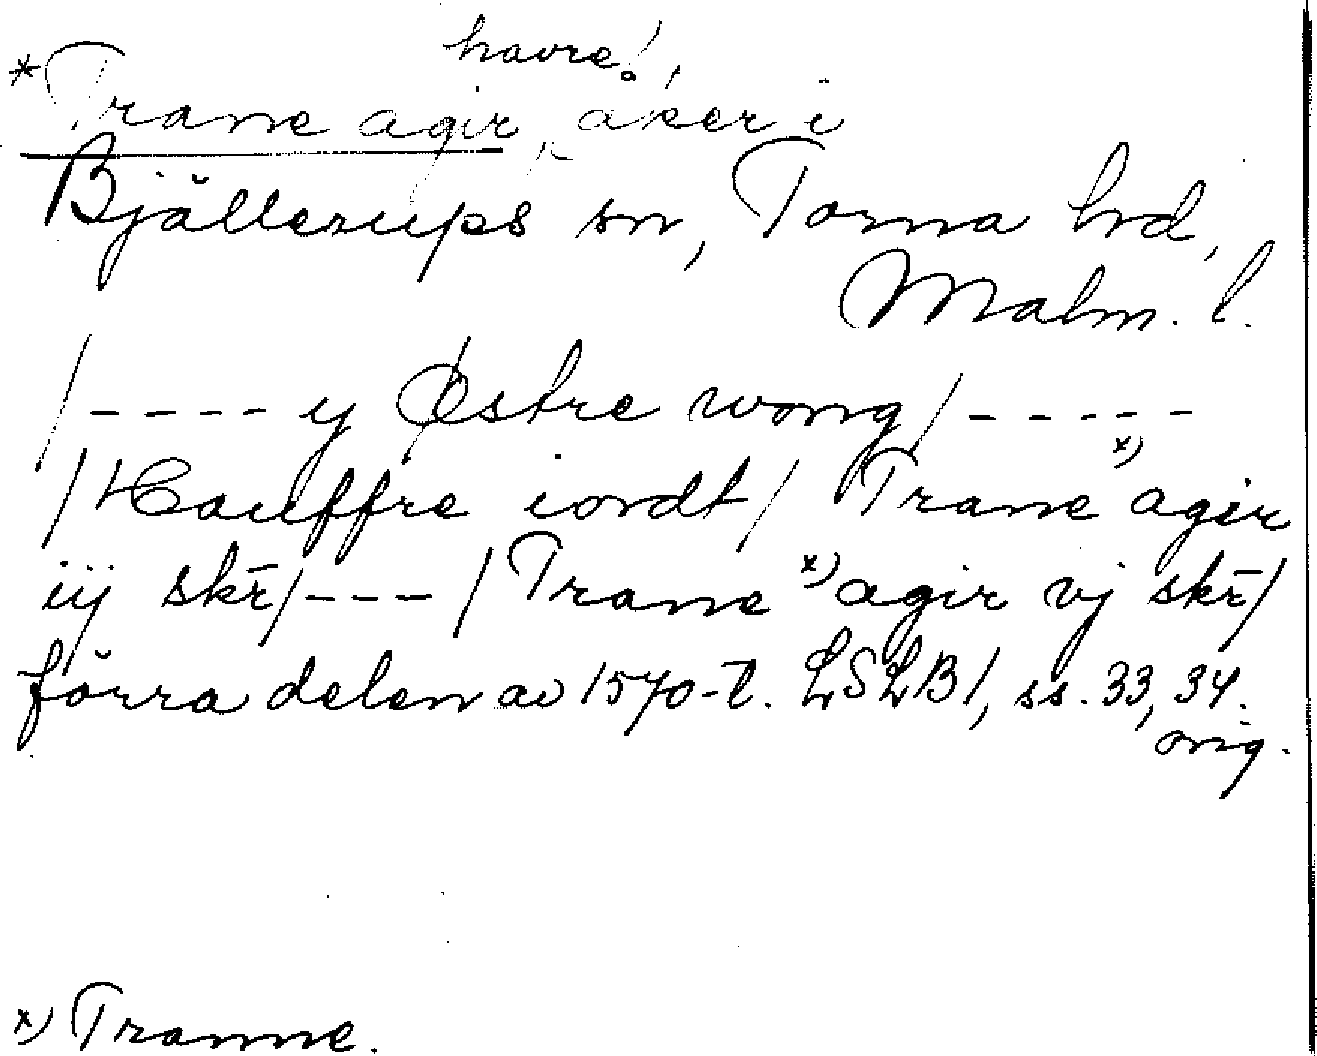 havre!,
*Trane agir, åker i
Bjällerups sn, Torna hd,
Malm. l.
/---- y Østre wong/-----
/Hauffre iordt/ Trane x) agir
iij skr̄/---/Trane x) agir vj skr̄/
förra delen av 1570-t. LSLB1, ss. 33, 34.
orig.
x) Tranne.